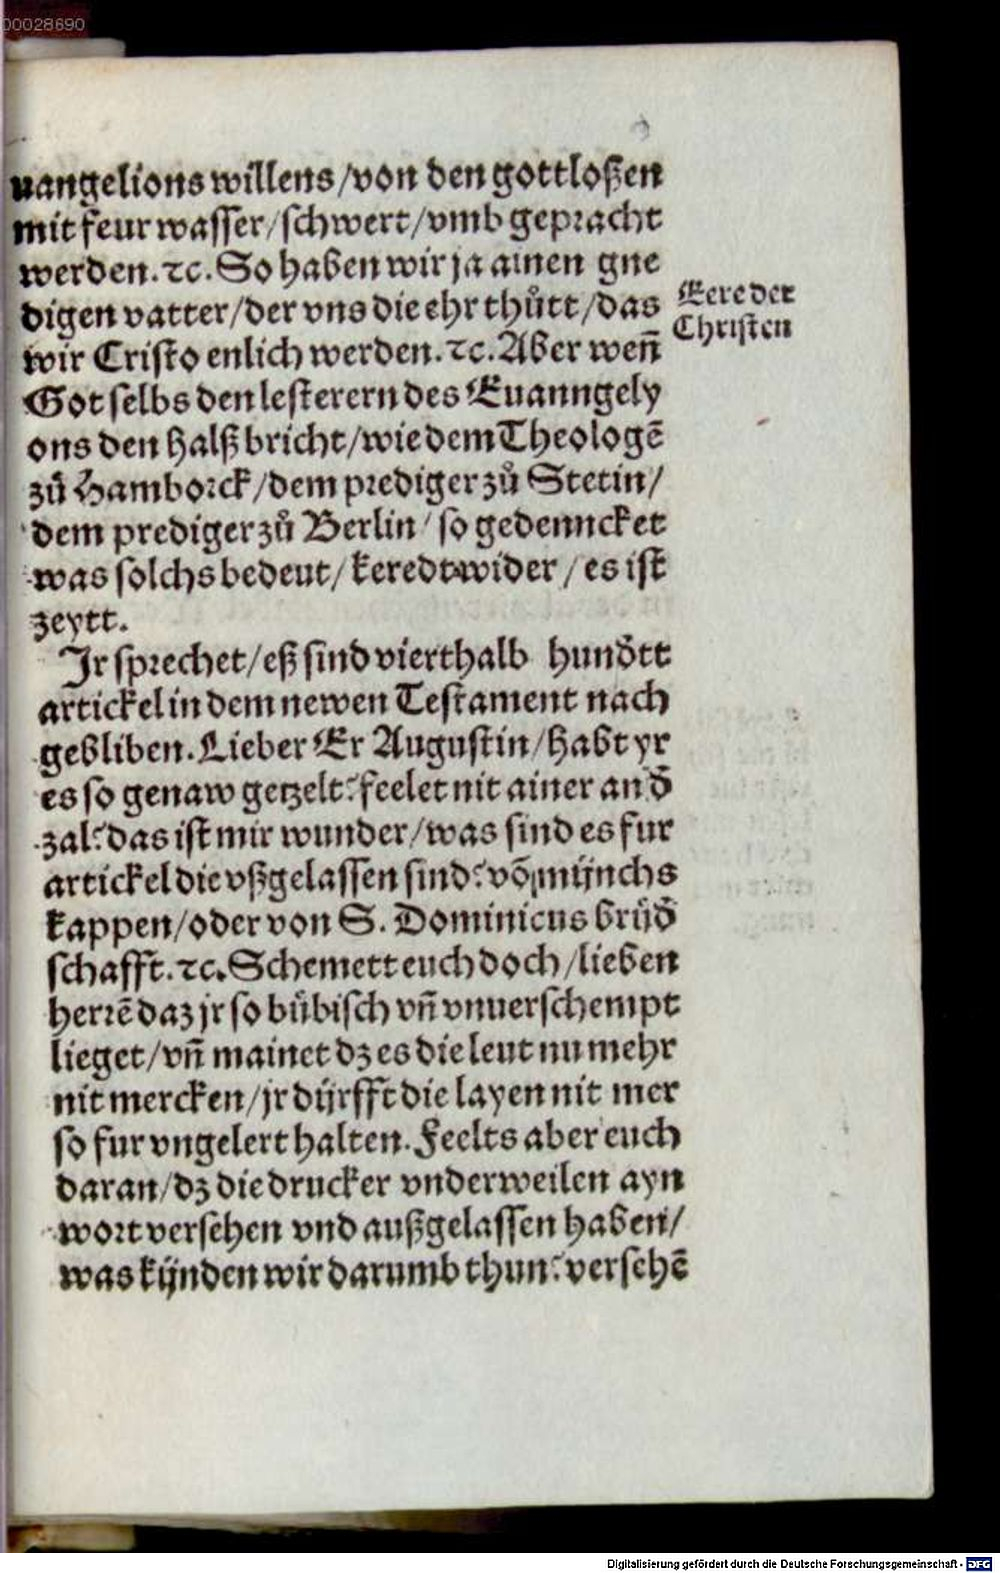 00028690
uangelions willens/von den gottloßen
mit feur wasser/schwert/vmb gepracht
werden.⁊c. So haben wir ja ainen gne
digen vatter/der vns die ehr thůtt/das
Eere der
Christen
wir Cristo enlich werden.⁊c. Aber weñ
Got selbs den lesterern des Euanngely
ons den halß bricht/wie dem Theologē
zů Hamborck/dem prediger zů Stetin/
dem prediger zů Berlin/so gedenncket
was solchs bedeut/keredt wider/es ist
zeytt.
Jr sprechet/eß sind vierthalb hundˢtt
artickel in dem newen Testament nach
gebliben. Lieber Er Augustin/habt yr
es so genaw getzelt? feelet nit ainer an dˢ
zal? das ist mir wunder/was sind es fur
artickel die vßgelassen sind? võ mijnchs
kappen/oder von S. Dominicus brůdˢ
schafft.⁊c. Schemett euch doch/lieben
herrē daz jr so bůbisch vñ vnuerschempt
lieget/vñ mainet dz es die leut nu mehr
nit mercken/jr dijrfft die layen nit mer
so fur vngelert halten. Feelts aber euch
daran/dz die drucker vnderweilen ayn
wort versehen vnd außgelassen haben/
was kijnden wir darumb thun? versehē
Digitalisierung gefördert durch die Deutsche Forschungsgemeinschaft - DFG